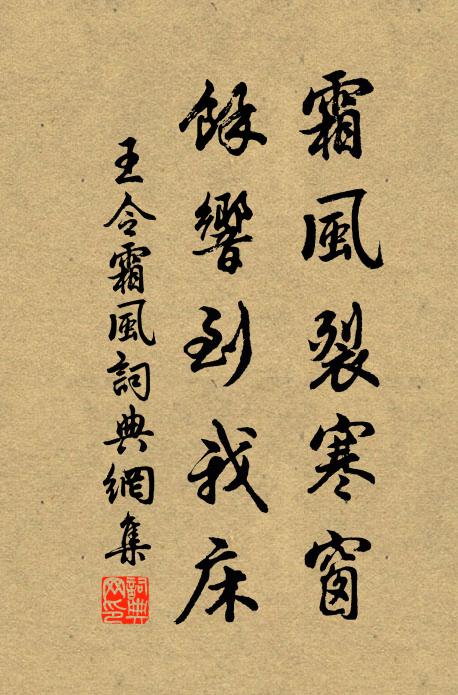 霜風裂寒窗
餘響到我床
王令霜風詞典網集
詞典網印